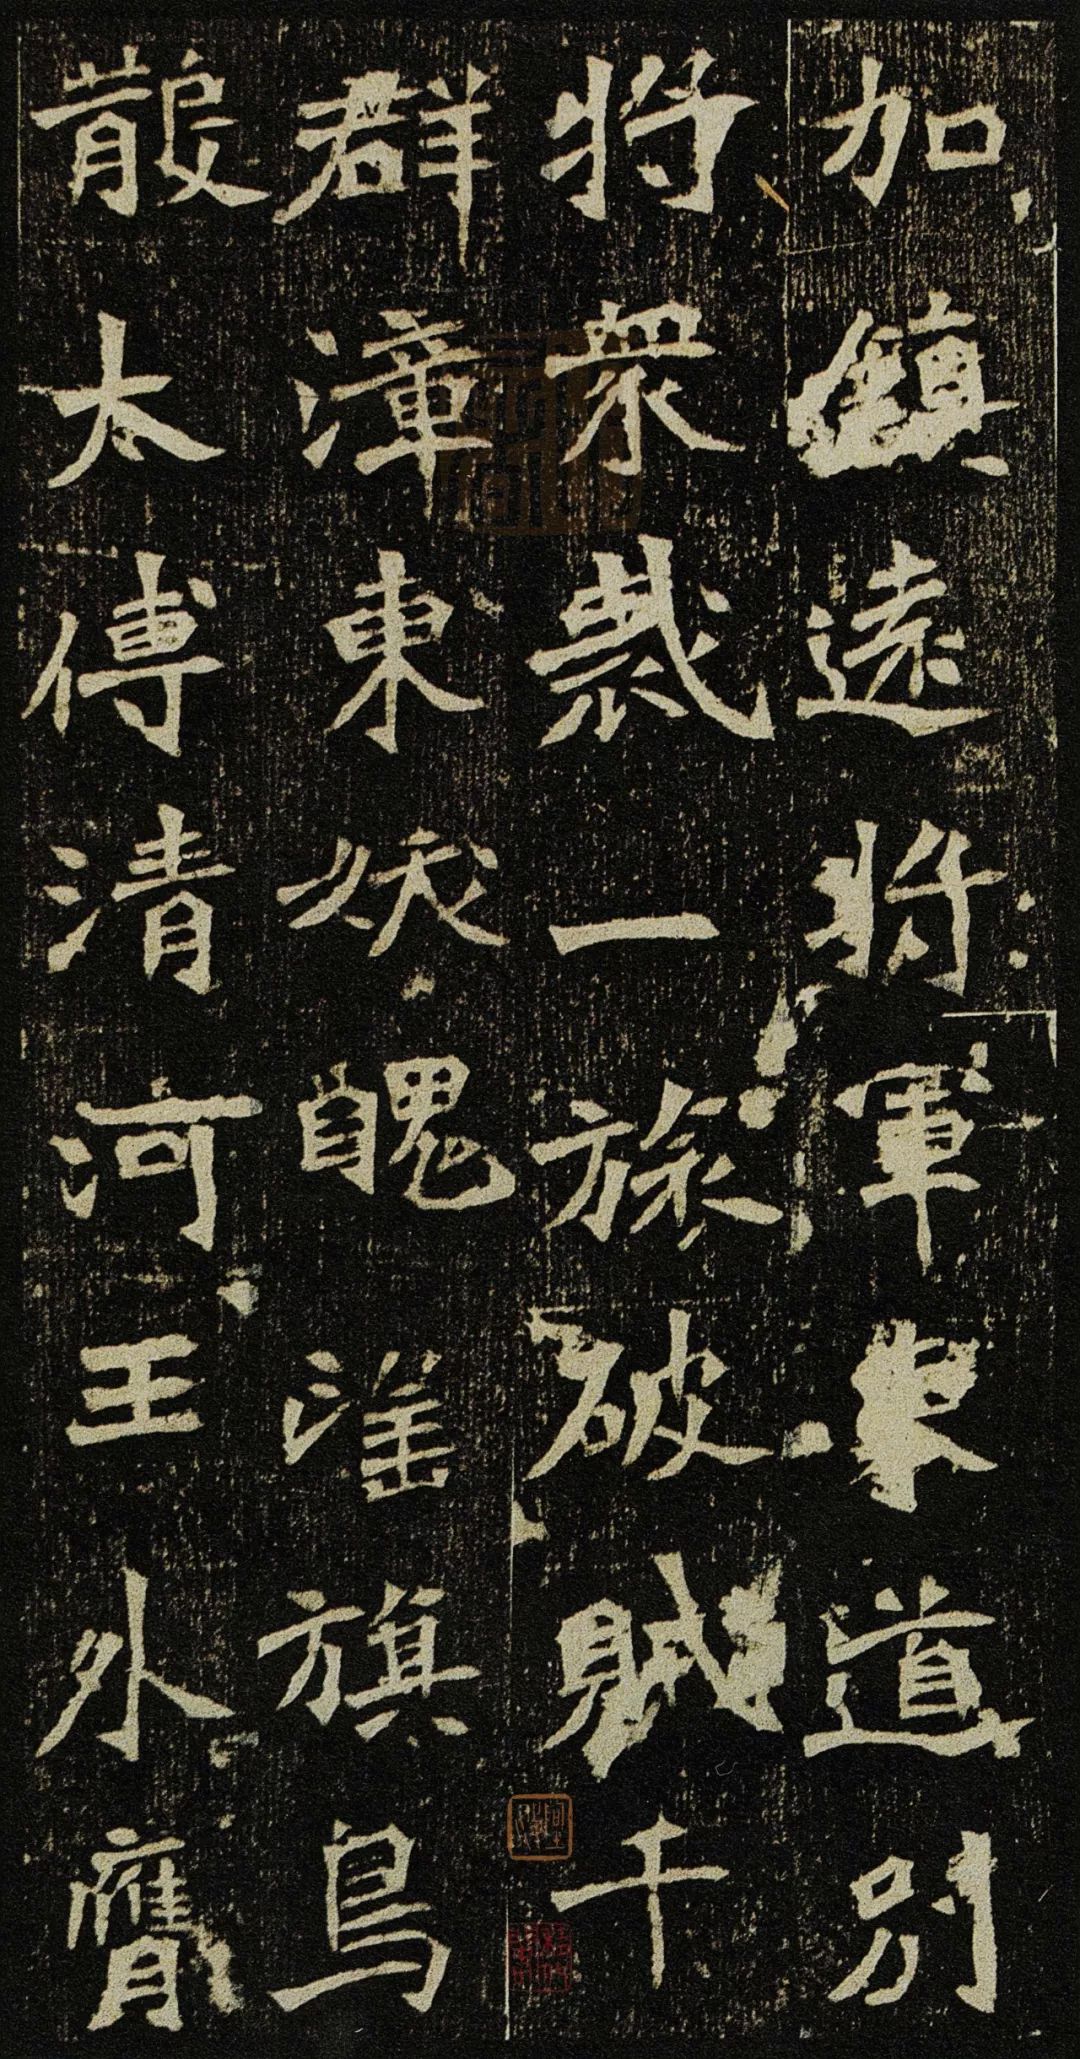 加鎮遠將軍東道別
將眾裁一旅破賊千
群漳東妖醜滛旗鳥
散太傅清河王外膺